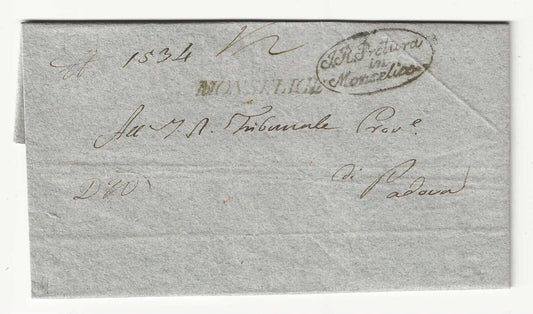 N 1534
I. R. Pretura
in
Monselice
MONSELICE
All I. R. Tribunale Prov.e
di
Padova